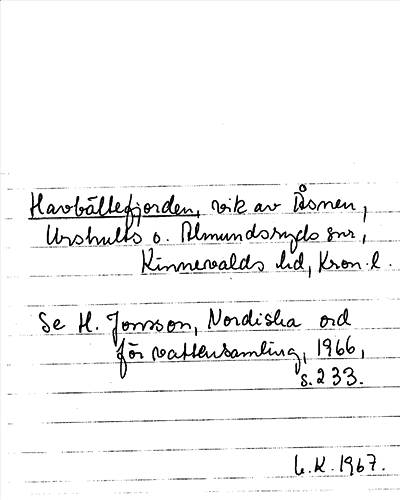 Havbältefjorden, vik av Åsnen,
Urshults o. Almundsryds snr,
Kinnevalds hd, Kron.l.
Se H. Jonsson, Nordiska ord
för vattensamling, 1966,
s. 233.
L.K. 1967.